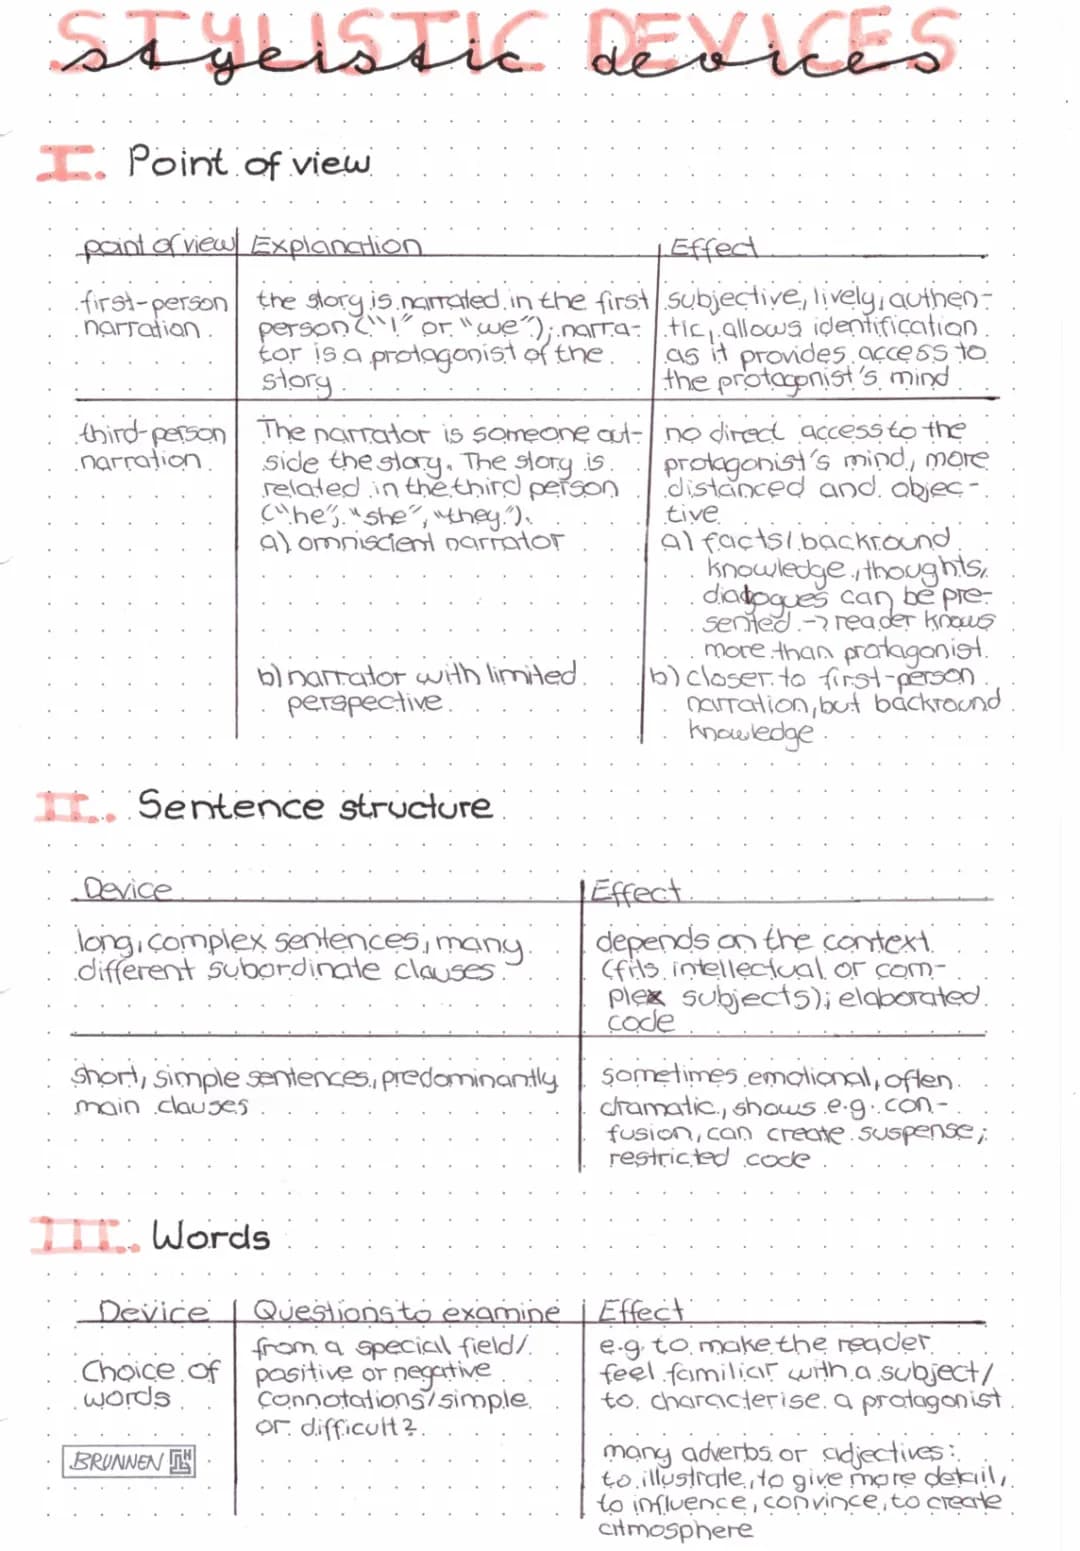 STYLISTIC DEVICES
stylistic devices
I. Point of view
point of view Explanation Effect
first-person narration
the story is narrated in the first
person ("I" or "we"); narra-
tor is a protagonist of the
story
subjective, lively, authen-
tic, allows identification
as it provides access to
the protagonist's mind
third-person
narration
The narrator is someone out-
side the story. The story is
related in the third person
("he", "she", "they").
a) omniscient narrator
b) narrator with limited
perspective
no direct access to the
protagonist's mind, more
distanced and objec-
tive
a) facts/backround
knowledge, thoughts,
dialogues can be pre-
sented → reader knows
more than protagonist.
b) closer to first-person
narration, but backround
knowledge
II. Sentence structure
Device Effect
long, complex sentences, many
different subordinate clauses
depends on the context
(fits intellectual or com-
plex subjects); elaborated
code
short, simple sentences, predominantly
main clauses
sometimes emotional, often
dramatic, shows e.g. con-
fusion, can create suspense;
restricted code
III. Words
Device Questions to examine Effect
Choice of
words
from a special field/
positive or negative
connotations/simple
or difficult?
e.g. to make the reader
feel familiar with a subject/
to characterise a protagonist
many adverbs or adjectives:
to illustrate, to give more detail,
to influence, convince, to create
atmosphere
BRUNNEN